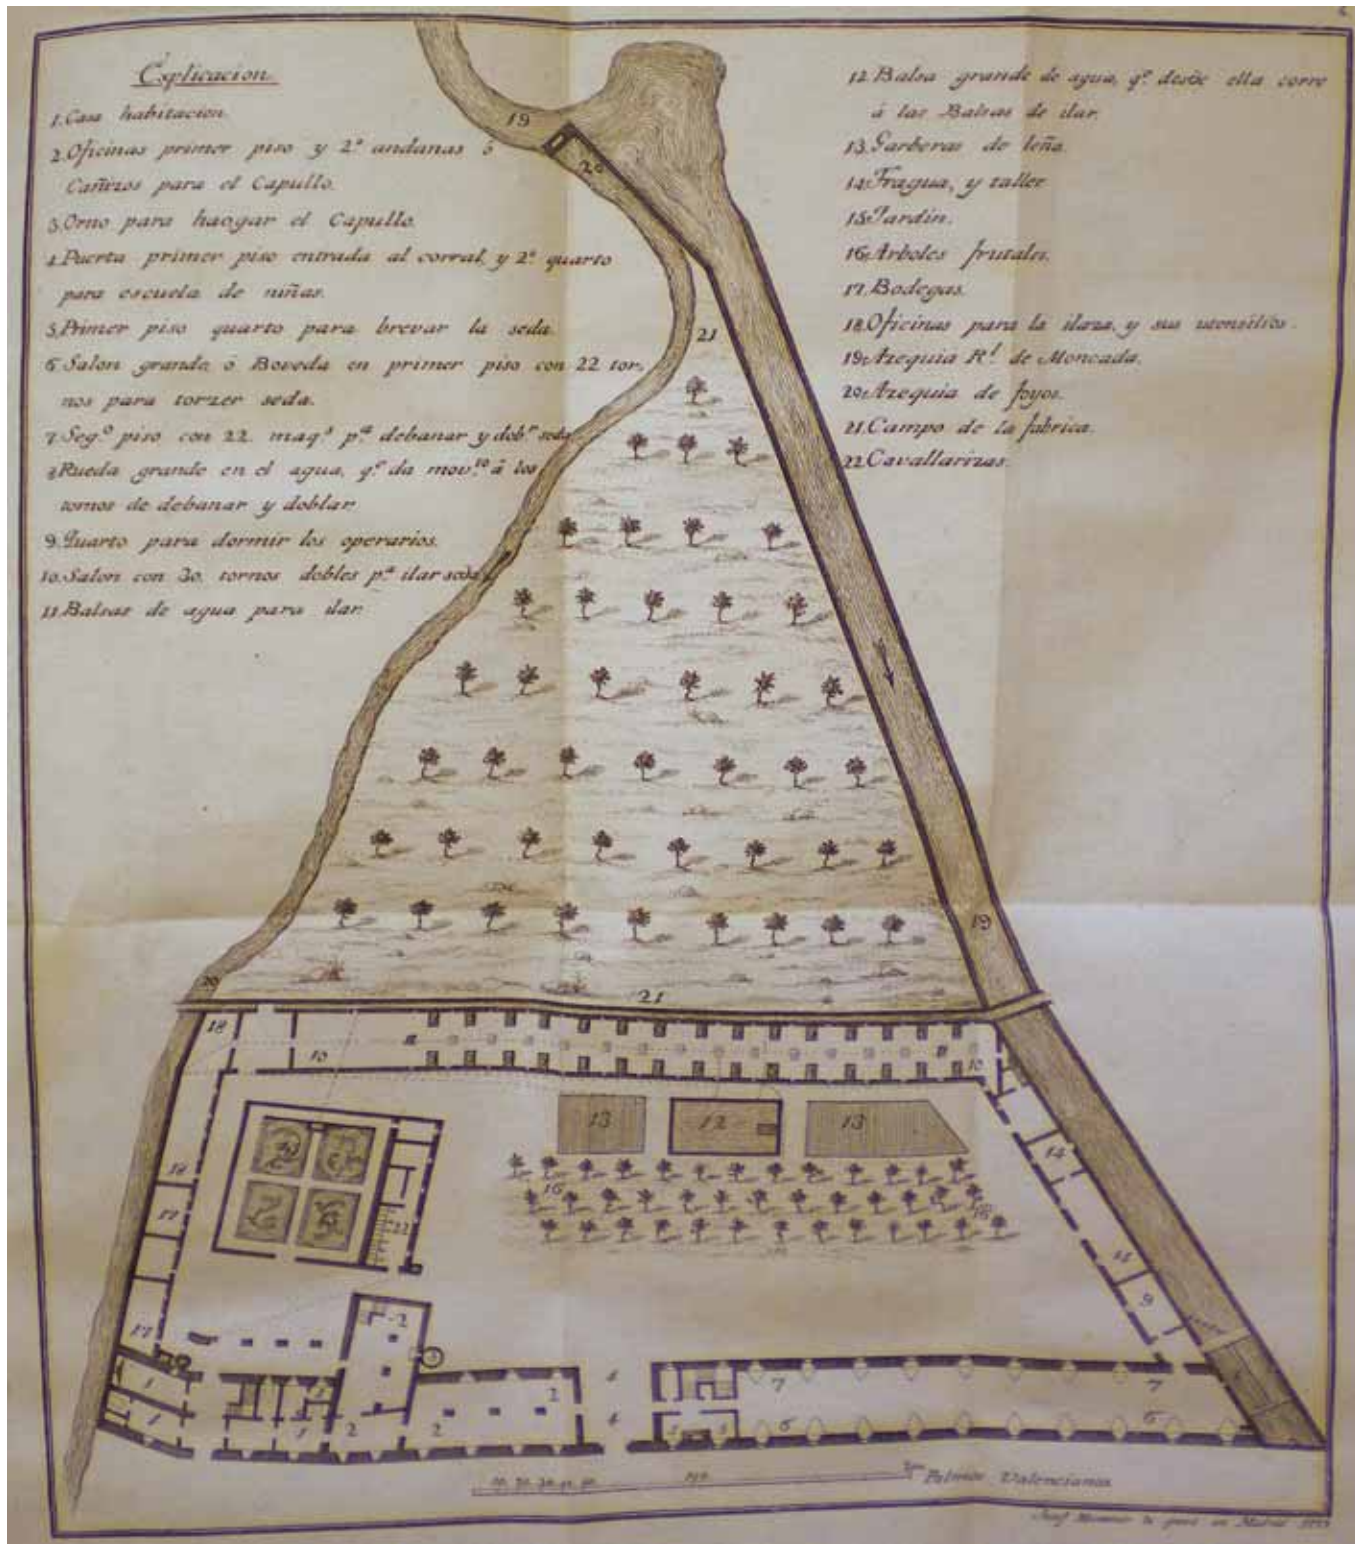 Explicacion.
1. Casa habitacion.
2. Oficinas primer piso y 2º andanas ó
Cañizos para el Capullo.
3. Orno para haogar el Capullo.
4. Puerta primer piso entrada al corral, y 2º quarto
para escuela de niñas.
5. Primer piso quarto para brevar la seda.
6. Salon grande ó Boveda en primer piso con 22 tor-
nos para torzer seda.
7. Seg.º piso con 22. maq.s p.a debanar y dob.r seda
8. Rueda grande en el agua, q.e da mov.to á los
tornos de debanar y doblar.
9. Quarto para dormir los operarios.
10. Salon con 30. tornos dobles p.a ilar seda.
11. Balsas de agua para ilar.
12. Balsa grande de agua, q.e desde ella corre
á las Balsas de ilar.
13. Garberas de leña.
14. Fragua, y taller.
15. Jardin.
16. Arboles frutales.
17. Bodegas.
18. Oficinas para la ilaza, y sus utensilios.
19. Azequia R.l de Moncada.
20. Azequia de foyos.
21. Campo de la fabrica.
22. Cavallarizas.
19
20
21
19
21
18
10
10
13
12
13
14
16
16
22
9
17
2
1
2
2
2
4
4
7
7
6
6
1
1
Palmos Valencianos